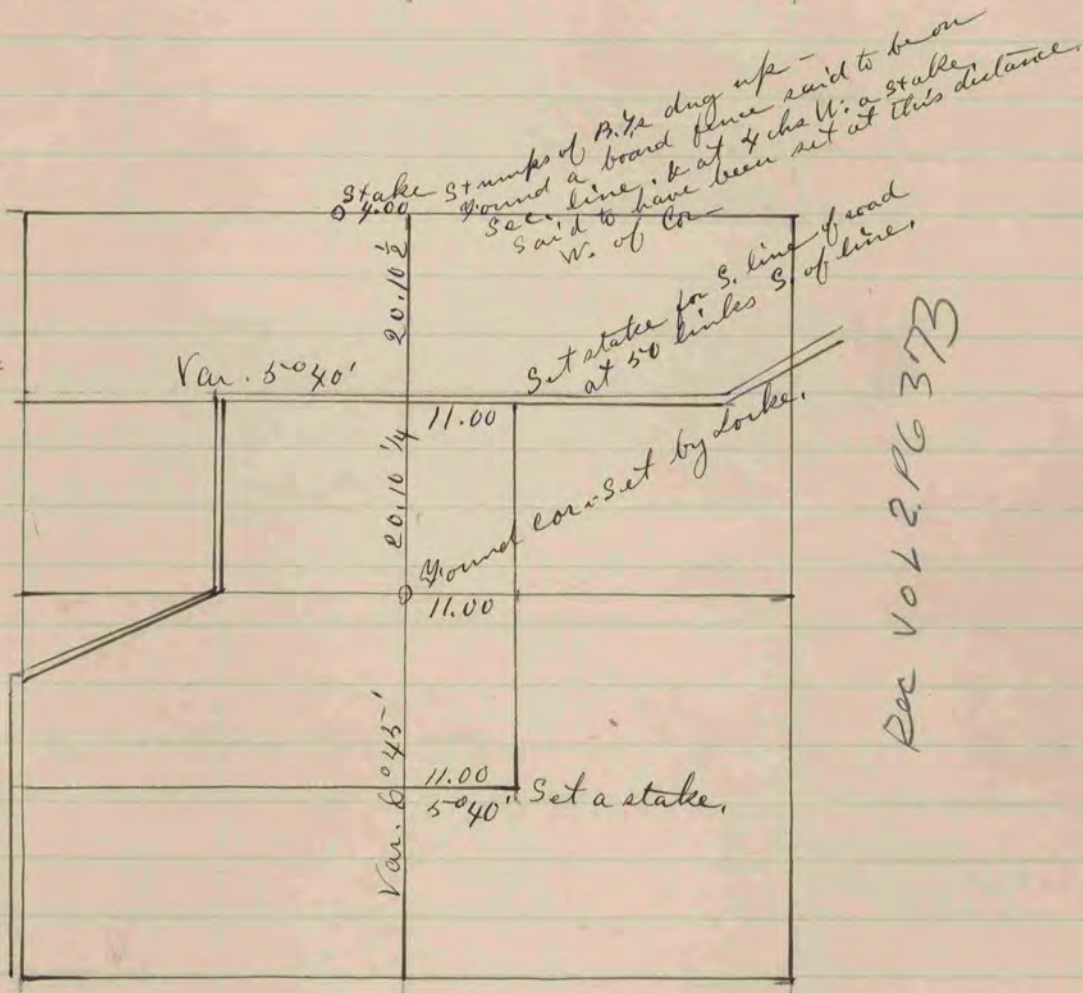 Stumps of B.Ts dug up -
Found a board fence said to be on
Sec. line, & at 4 chs W. a stake
Said to have been set at this distance,
W. of Cor -
Stake
4.00
20.10 1/2
Set stake for S. line of road
at 50 links S. of line,
Var. 5°40'
11.00
20.10 1/4
Found cor. Set by Locke,
11.00
Var. 6°45'
11.00
5°40'
Set a stake,
Rec VOL 2. PG 373